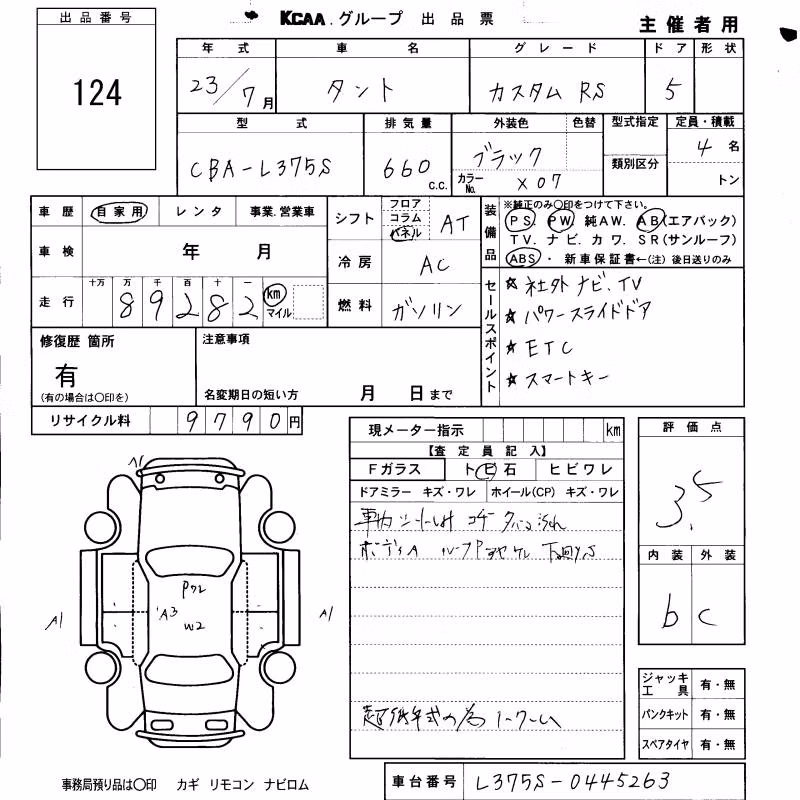 出品番号
124
KCAA.グループ 出品票
主催者用
年式 車名 グレード ドア 形状
23/7月 タント カスタム RS 5
型式 排気量 外装色 色替 型式指定 定員・積載
CBA-L375S 660 c.c. ブラック 類別区分 4名
カラーNo. X07 トン
車歴 自家用 レンタ 事業.営業車
車検 年 月
走行 十万 万 千 百 十 一
89282 km マイル
シフト フロア コラム パネル AT
冷房 AC
燃料 ガソリン
装備品
※純正のみ○印をつけて下さい。
PS. PW 純AW. AB(エアバック)
TV. ナビ. カワ. SR(サンルーフ)
ABS・新車保証書←(注)後日送りのみ
セールスポイント
☆ 社外ナビ.TV
☆ パワースライドドア
★ ETC
★ スマートキー
修復歴 箇所
有
(有の場合は○印を)
注意事項
名変期日の短い方 月 日まで
リサイクル料 9790円
現メーター指示 km
【査定員記入】
Fガラス トビ石 ヒビワレ
ドアミラー キズ・ワレ ホイール(CP) キズ・ワレ
車内シート
ボディA ルーフP
超低年式の為ノークレ
評価点
3.5
内装 外装
b c
ジャッキ工具 有・無
パンクキット 有・無
スペアタイヤ 有・無
A1
P
A3
W2
A1
A1
事務局預り品は○印 カギ リモコン ナビロム
車台番号 L375S-0445263